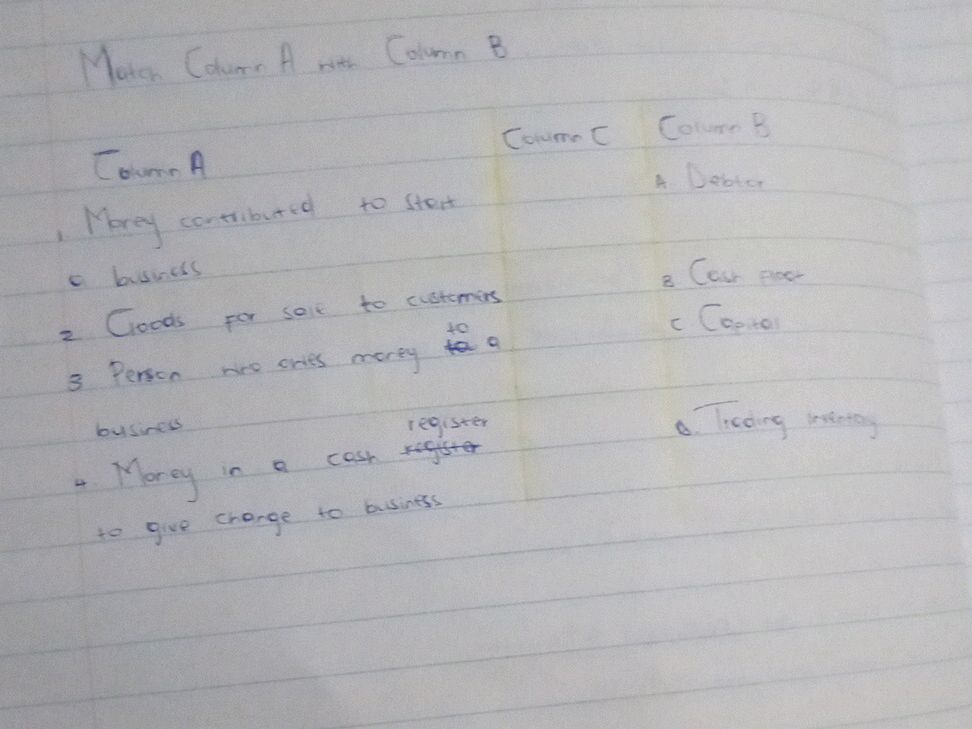 Match Column A with Column B
Column A Column C Column B
1 Money contributed to start A. Debtor
a business
B Cash float
2 Goods for sale to customers
C Capital
3 Person who owes money to a
business
D. Trading inventory
4 Money in a cash register
to give change to business